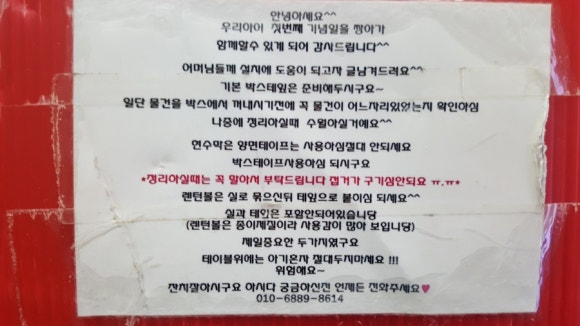 안녕하세요^^
우리아이 첫번째 기념일을 짱아가
함께할수 있게 되어 감사드립니다^^
어머님들께 설치에 도움이 되고자 글남겨드려요^^
기본 박스테잎은 준비해두시구요~
일단 물건을 박스에서 꺼내시기전에 꼭 물건이 어느자리있었는지 확인하심
나중에 정리하실때 수월하실거에요^^
현수막은 양면테이프는 사용하심절대 안되세요
박스테이프사용하심 되시구요
*정리하실때는 꼭 말아서 부탁드립니다 접거가 구기심안되요 ㅠ.ㅠ*
렌턴볼은 실로 묶으신뒤 테잎으로 붙이심 되세요^^
실과 테잎은 포함안되어있습니당
(렌턴볼은 종이제질이라 사용감이 많아 보입니당)
제일중요한 두가지였구요
테이블위에는 아기혼자 절대두지마세요 !!!
위험해요~
잔치잘하시구요 하시다 궁금하신전 언제든 전화주세요♥
010-6889-8614